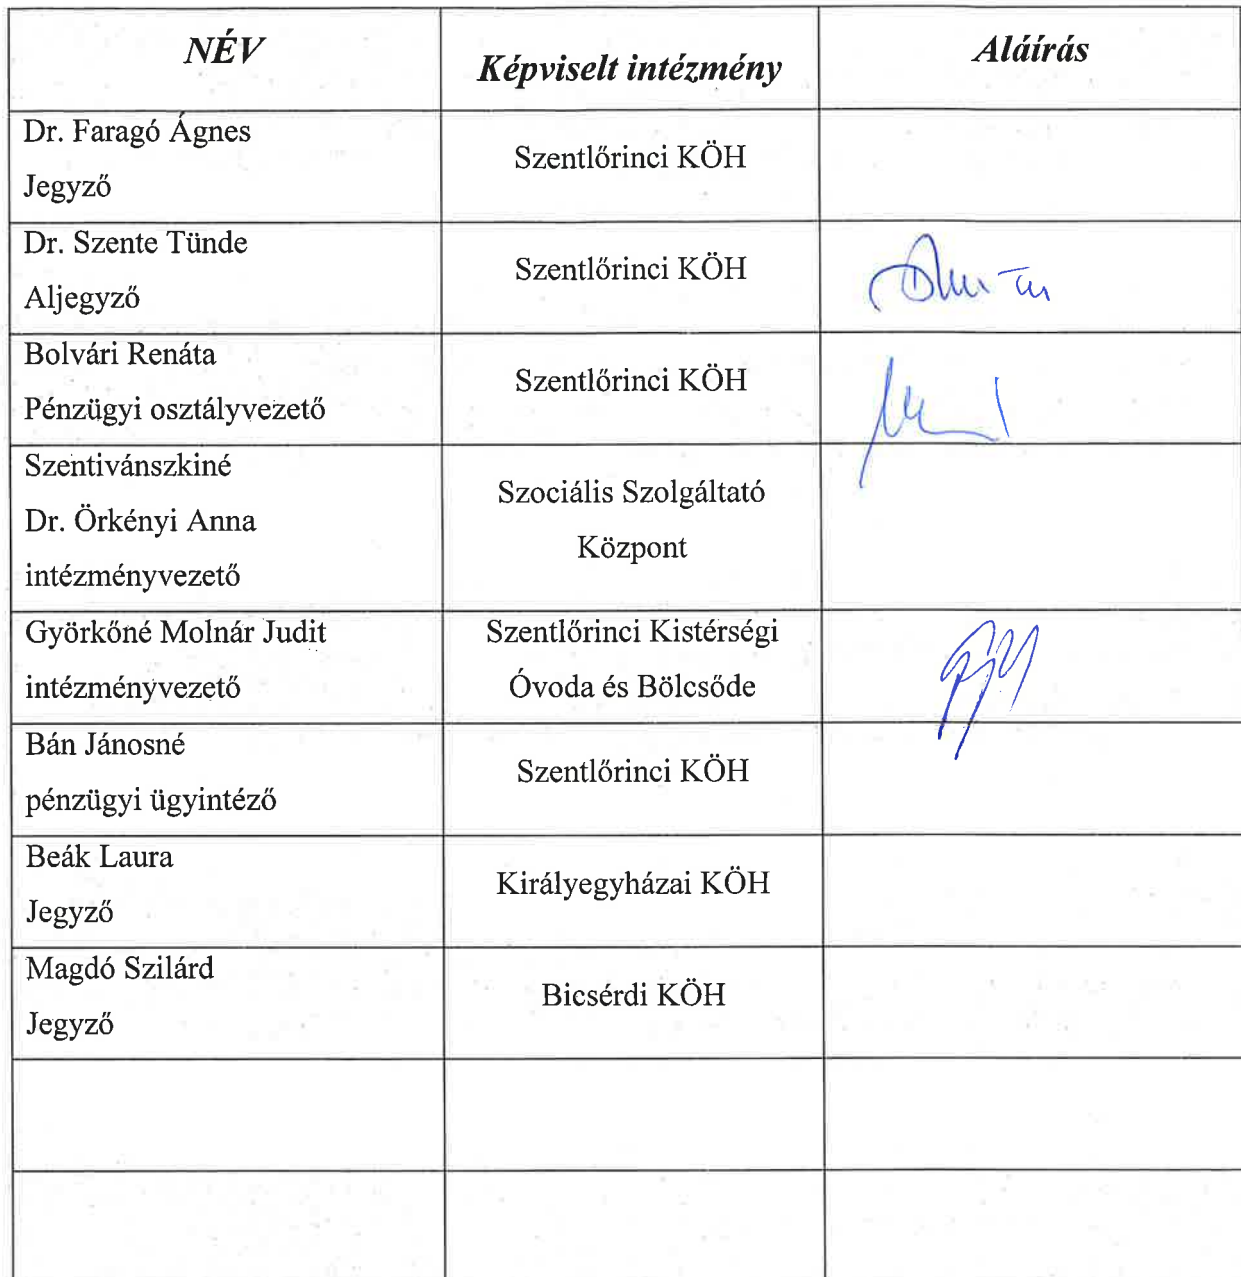 NÉV
Képviselt intézmény
Aláírás
Dr. Faragó Ágnes
Jegyző
Szentlőrinci KÖH
Dr. Szente Tünde
Aljegyző
Szentlőrinci KÖH
Bolvári Renáta
Pénzügyi osztályvezető
Szentlőrinci KÖH
Szentivánszkiné
Dr. Örkényi Anna
intézményvezető
Szociális Szolgáltató
Központ
Györkőné Molnár Judit
intézményvezető
Szentlőrinci Kistérségi
Óvoda és Bölcsőde
Bán Jánosné
pénzügyi ügyintéző
Szentlőrinci KÖH
Beák Laura
Jegyző
Királyegyházai KÖH
Magdó Szilárd
Jegyző
Bicsérdi KÖH